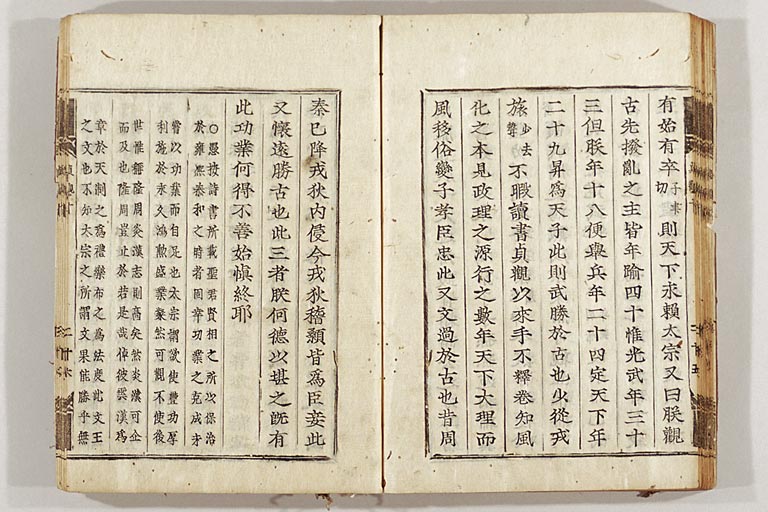 有始有卒子聿切則天下永賴太宗又曰朕觀
古先撥亂之主皆年踰四十惟光武年三十
三但朕年十八便擧兵年二十四定天下年
二十九昇爲天子此則武勝於古也少從戎
旅少去聲不暇讀書貞觀以來手不釋卷知風
化之本見政理之源行之數年天下大理而
風移俗變子孝臣忠此又文過於古也昔周
秦已降戎狄內侵今戎狄稽顙皆爲臣妾此
又懷遠勝古也此三者朕何德以堪之旣有
此功業何得不善始愼終耶
○愚按詩書所載聖君賢相之所以保治
於雍熙泰和之時者固幸功業之克成才
嘗以功業而自足也太宗謂武使豐功厚
利施於永久鴻勲盛業粲然可觀不使後
世惟稱隆周炎漢志則高矣然炎漢可企
而及也隆周豈止於若是哉倬彼雲漢爲
章於天制之爲禮樂布之爲法度此文王
之文也不知太宗之所謂文果能勝乎無